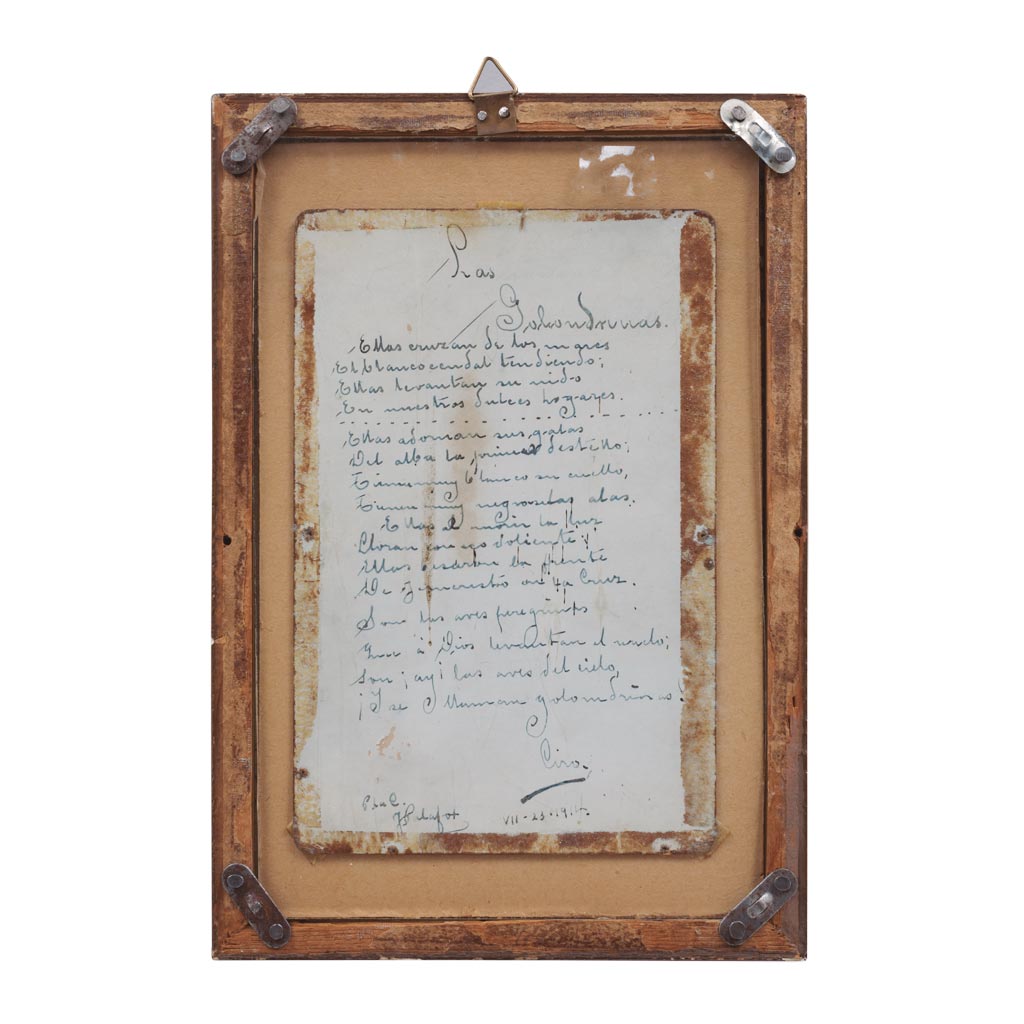 Las
Golondrinas.
Ellas cruzan de los mares
El blanco cendal tendiendo;
Ellas levantan su nido
En nuestros dulces hogares.
Ellas adornan sus galas
Del alba la primer destello;
Tienen muy blanco su cuello,
Tienen muy negras las alas.
Ellas al morir la luz
Lloran con eco doliente
Ellas besaron la frente
De Jesucristo en la Cruz.
Son las aves peregrinas
Que á Dios levantan el vuelo;
Son ¡ay! las aves del cielo,
¡Y se llaman golondrinas!
Ciro.
P. la C.
VII - 23 - 1914